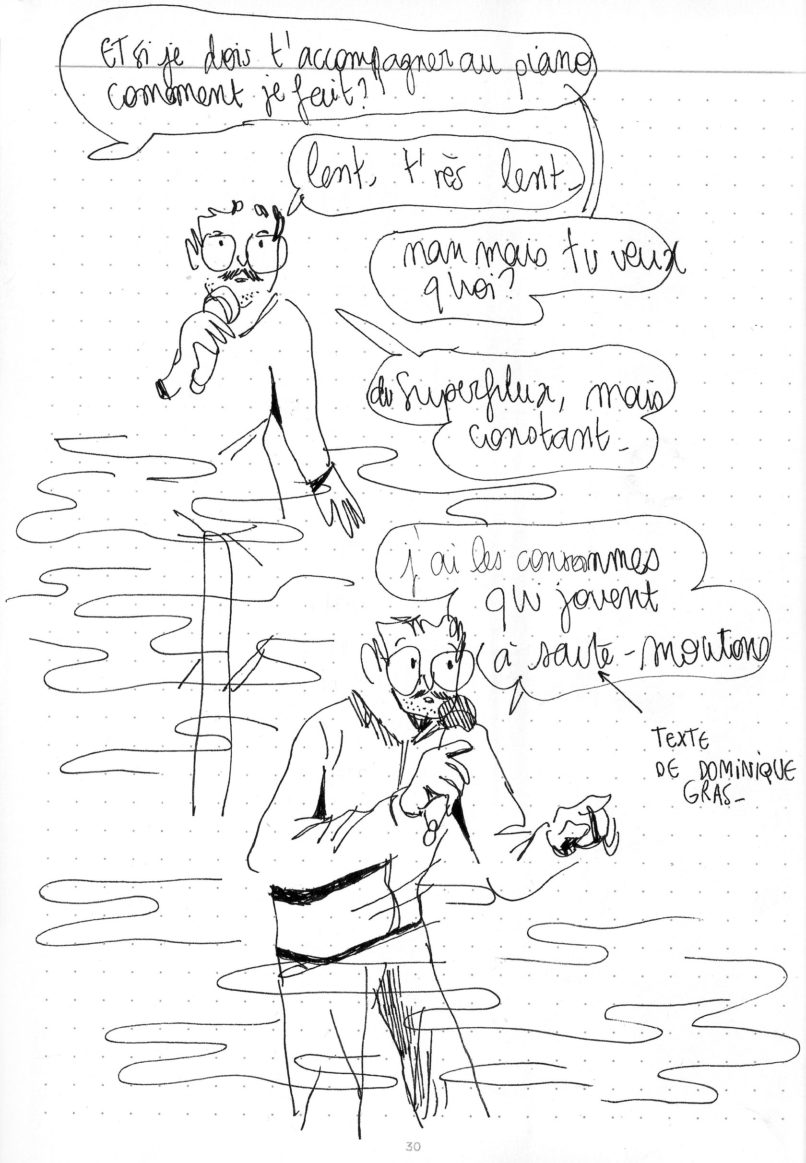 ET si je dois t'accompagner au piano
comment je fait?
lent, t'rès lent_
nan mais tu veux
quoi?
du superflux, mais
constant_
j'ai les consommes
qui jouent
à saute-moutons
TEXTE
DE DOMINIQUE
GRAS_
30